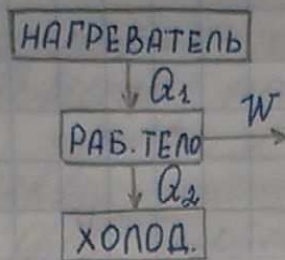 НАГРЕВАТЕЛЬ
Q1
W
РАБ. ТЕЛО
Q2
ХОЛОД.